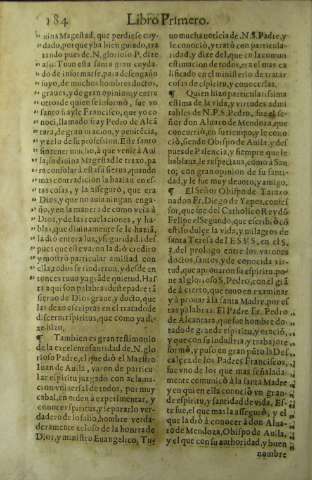 184 Libro Primero.
uina Magestad, que perdiese cuy-
dado, porque yba bien guiado, tra
tando pues de N. glorioso P. dize
assi. Tuuo esta santa gran cuyda-
do de informarse, para desengaño
suyo, de muchos hombres doctos,
graues, y de gran opinion, y entre
otros de quien se informó, fue vn
santo frayle Francisco, que yo co-
noci, llamado fray Pedro de Alcã
tara, de gran oracion, y penitēcia,
y zelo de su profession. Este santo
sintiēr mucho, que venir à Aui
la, su diuina Magestad le traxo, pa
ra consolar à esta su sierua, quando
mas contradicion la hazian en es-
tas cosas, y la asseguró, que era
Dios, y que no auia ningun enga-
ño, y en la manera de como veia à
Dios, y de las reuelaciones, y ha-
blas, que diuinamente se le hazia,
la dió entera luz, y seguridad: des
pues que esta, en la dió credito
y mostró particular amistad con
ella, todos se rindieron, y desde en
tonces tuuo ya grāde quietud. Has
ta aqui son palabras deste padre tã
sieruo de Dios, graue, y docto, que
las dexó escriptas en el tratado de
discernir espiritus, que como ya de
xe dicho,
¶ Tambien es gran testimonio
de la excelente santidad de N. glo
rioso Padre, el que dió el Maestro
Iuan de Auila, varon de particu-
lar espiritu juzgado con aclama-
cion vniuersal de todos, por muy
cabal, en orden à experimentar, y
conocer espiritus, y separar lo ver-
dadero de lo falso, hombre verda-
deramente zeloso de la honra de
Dios, y ministro Euangelico, Tu-
uo mucha noticia de N. S. Padre, y
le conoció, y trató con particula-
ridad, y dize del, que en la comun
estimacion de todos, era el mas ca
lificado en el ministerio de tratar
cosas de espiritu, y conocerlas.
¶ Quien hizo particularissima
estima de la vida, y virtudes admi
rables de N. P. S. Pedro, fue el se-
ñor Don Aluaro de Mendoza, que
concurrió en su tiempo, y le cono-
ció, siendo Obispo de Auila, y des
pues de Palencia, y siempre que le
hablaua, le respetaua, como à San-
to, con gran opinion de su santi-
dad, y le fue muy deuoto, y amigo,
¶ El Señor Obispo de Taraço
na Don Fr. Diego de Yepes, confes
sor, que fue del Catholico Rey dõ
Felipe el Segundo, que escribió cõ
estilo dulce la vida, y milagros de
santa Teresa de IESVS, en el §.
2. del prologo entre los varones
doctos, santos, y de conocida vir-
tud, que aprouaron su espiritu, po-
ne al glorioso S. Pedro, con el grã
de acierto, que tuuo en examinar
y aprouar a la santa Madre, por es
tas palabras. El Padre Fr. Pedro
de Alcantara, que fue hombre do-
tado de grande espiritu, y oració,
y que con su industria, y trabajo re
formó, y puso en gran pūto la Des
calçez de los Padres Franciscos,
fue vno de los que mas señalada-
mente comunicó à la santa Madre
y en quien ella conoció vn gran-
de espiritu, y santidad de vida. Es-
te fue, el que mas la asseguró, y el
que la dió à conocer à don Alua-
ro de Mendoza, Obispo de Auila,
y el que con su authoridad, y buen
nombre